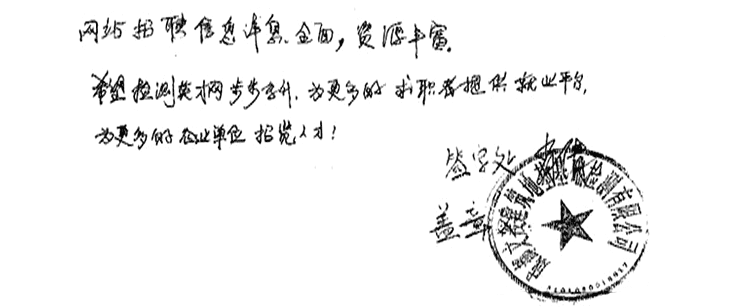 网站招聘信息详息全面，资源丰富。
希望检测英才网步步高升，为更多的求职者提供就业平台，
为更多的企业单位招览人才！
签字处
盖章
建筑地基基础检测有限公司